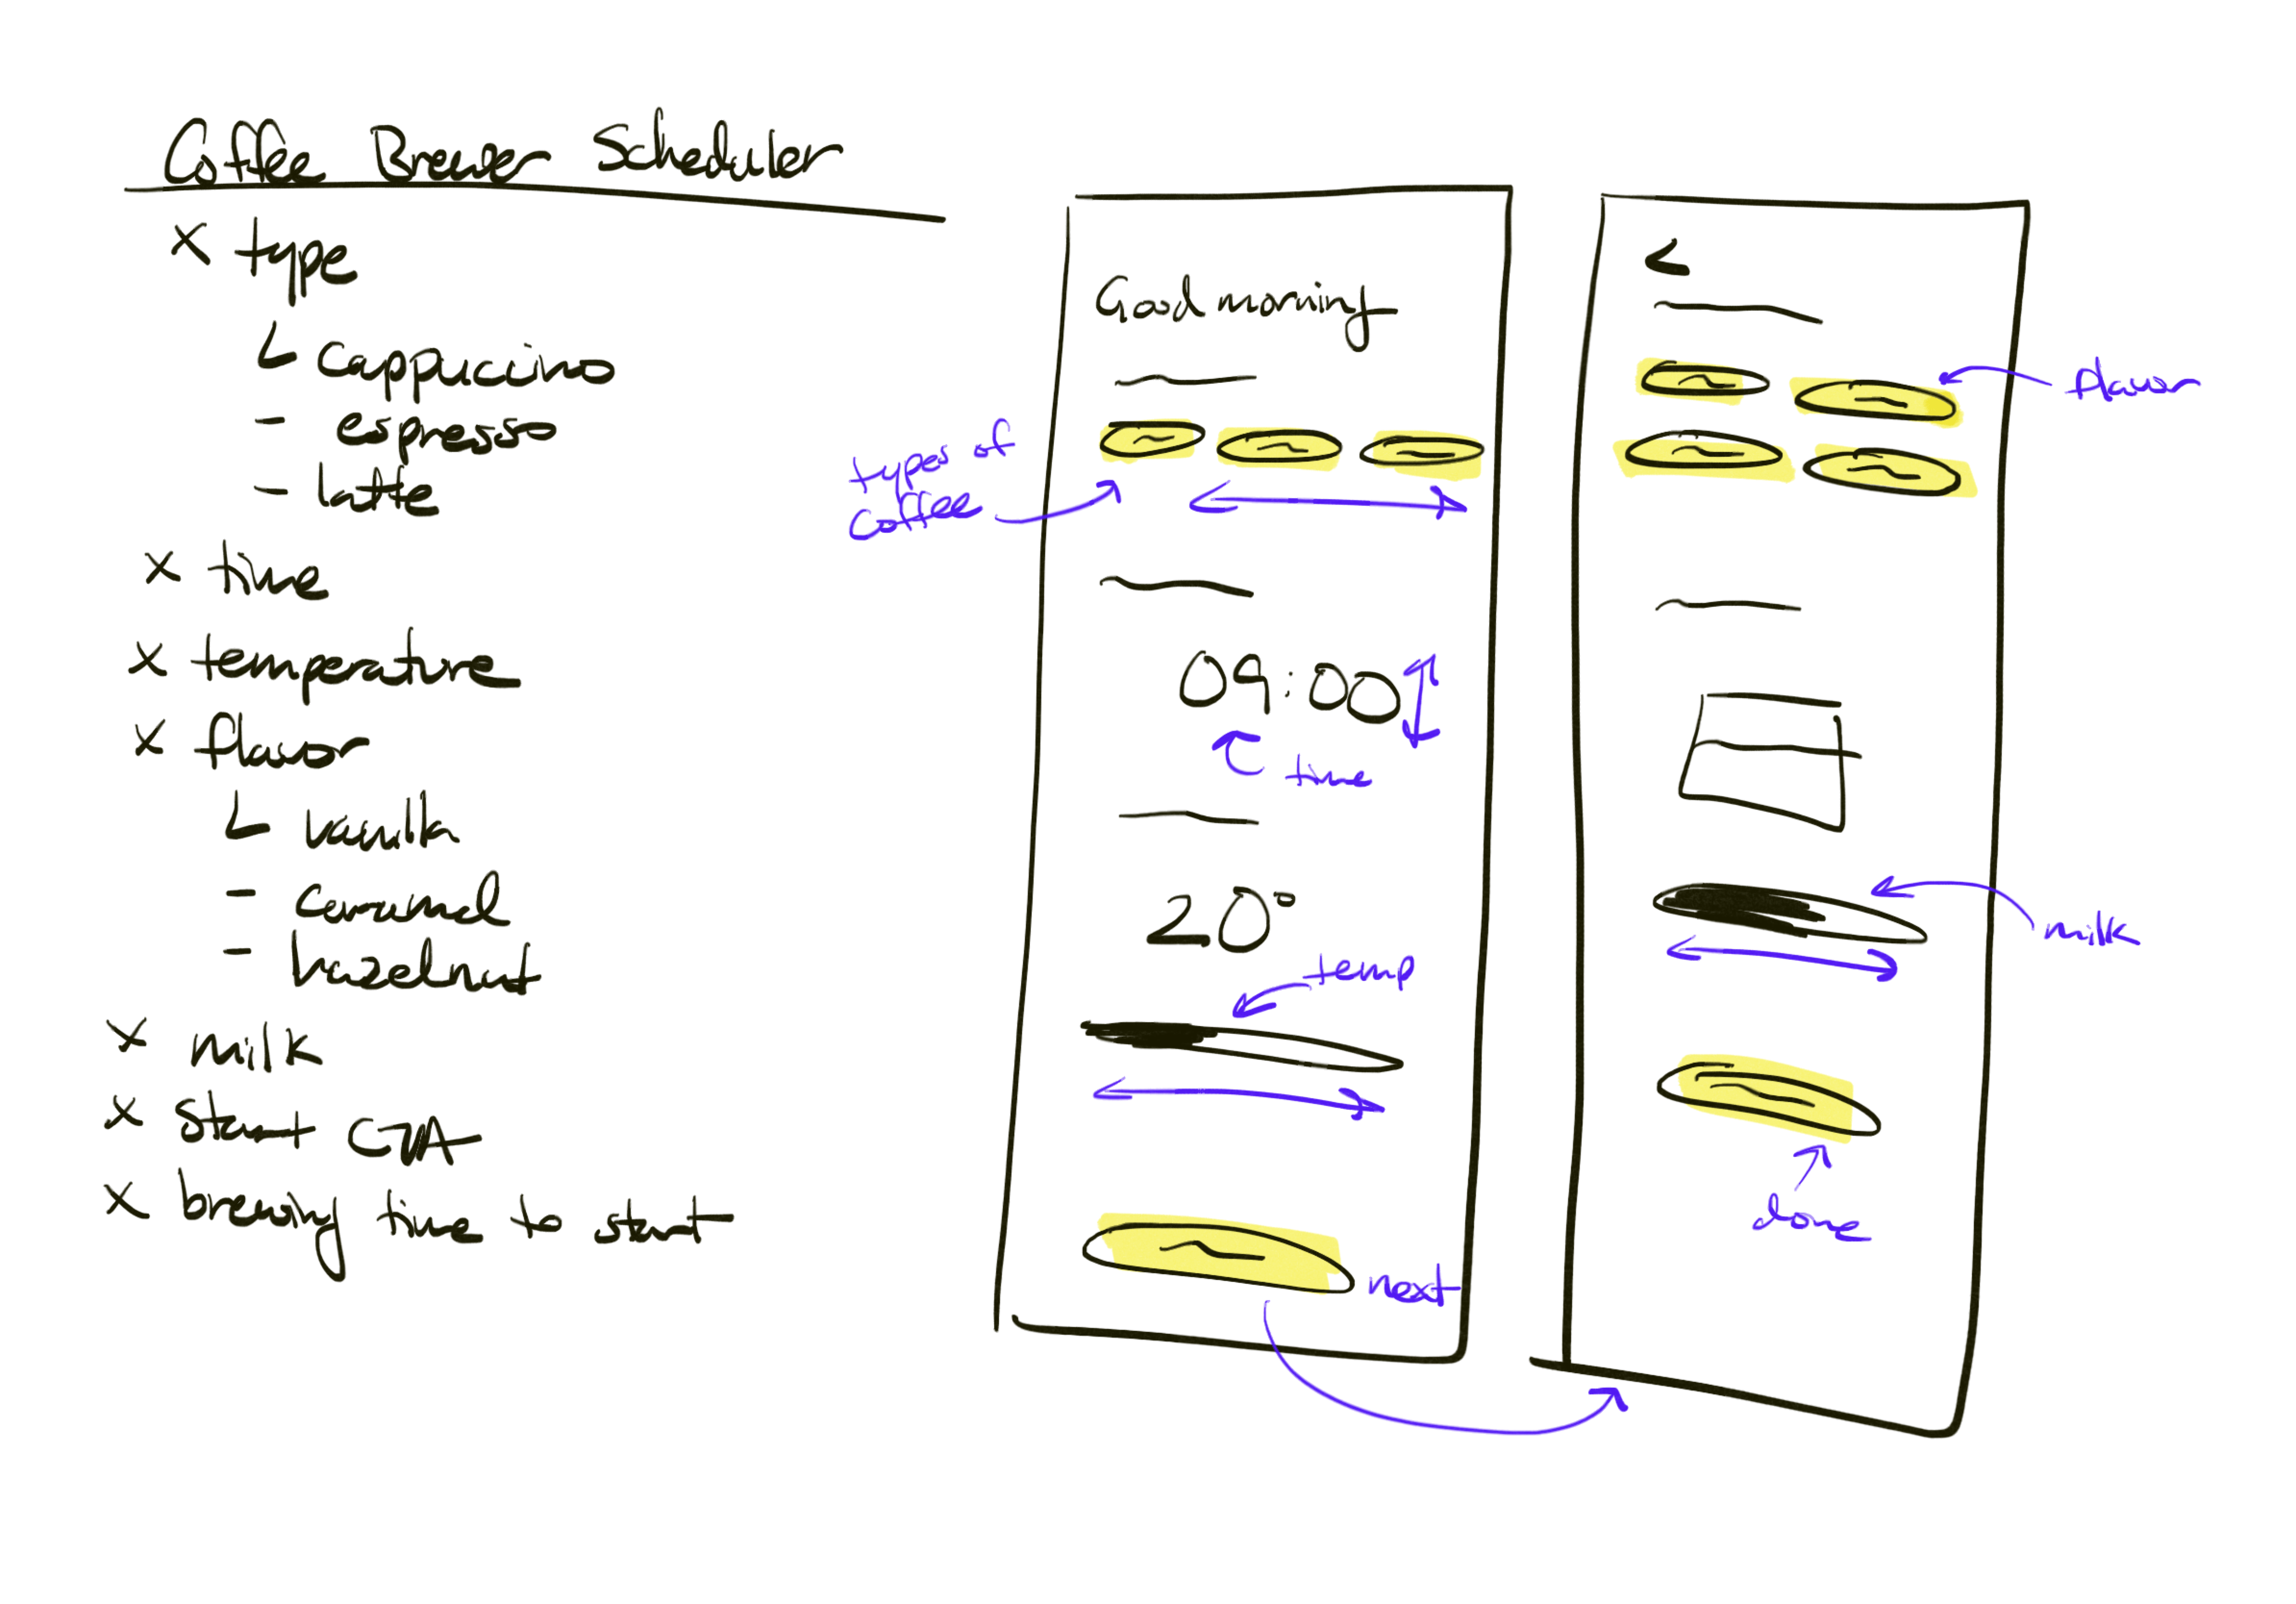 Coffee Brewer Scheduler
x type
cappuccino
- espresso
- latte
x time
x temperature
x flavor
vanilla
- caramel
- hazelnut
x milk
x start CTA
x brewing time to start
Good morning
types of
coffee
09:00
time
20°
temp
next
<
flavor
milk
done